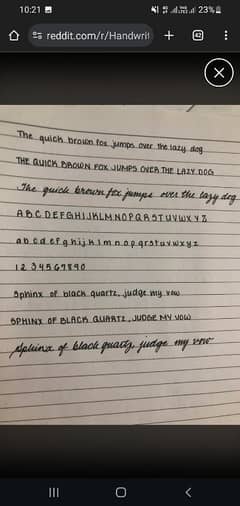 10:21
23%
reddit.com/r/Handwrit
42
The quick brown fox jumps over the lazy dog
THE QUICK BROWN FOX JUMPS OVER THE LAZY DOG
The quick brown fox jumps over the lazy dog
A B C D E F G H I J K L M N O P Q R S T U V W X Y Z
a b c d e f g h i j k l m n o p q r s t u v w x y z
1 2 3 4 5 6 7 8 9 0
Sphinx of black quartz, judge my vow
SPHINX OF BLACK QUARTZ, JUDGE MY VOW
Sphinx of black quartz, judge my vow